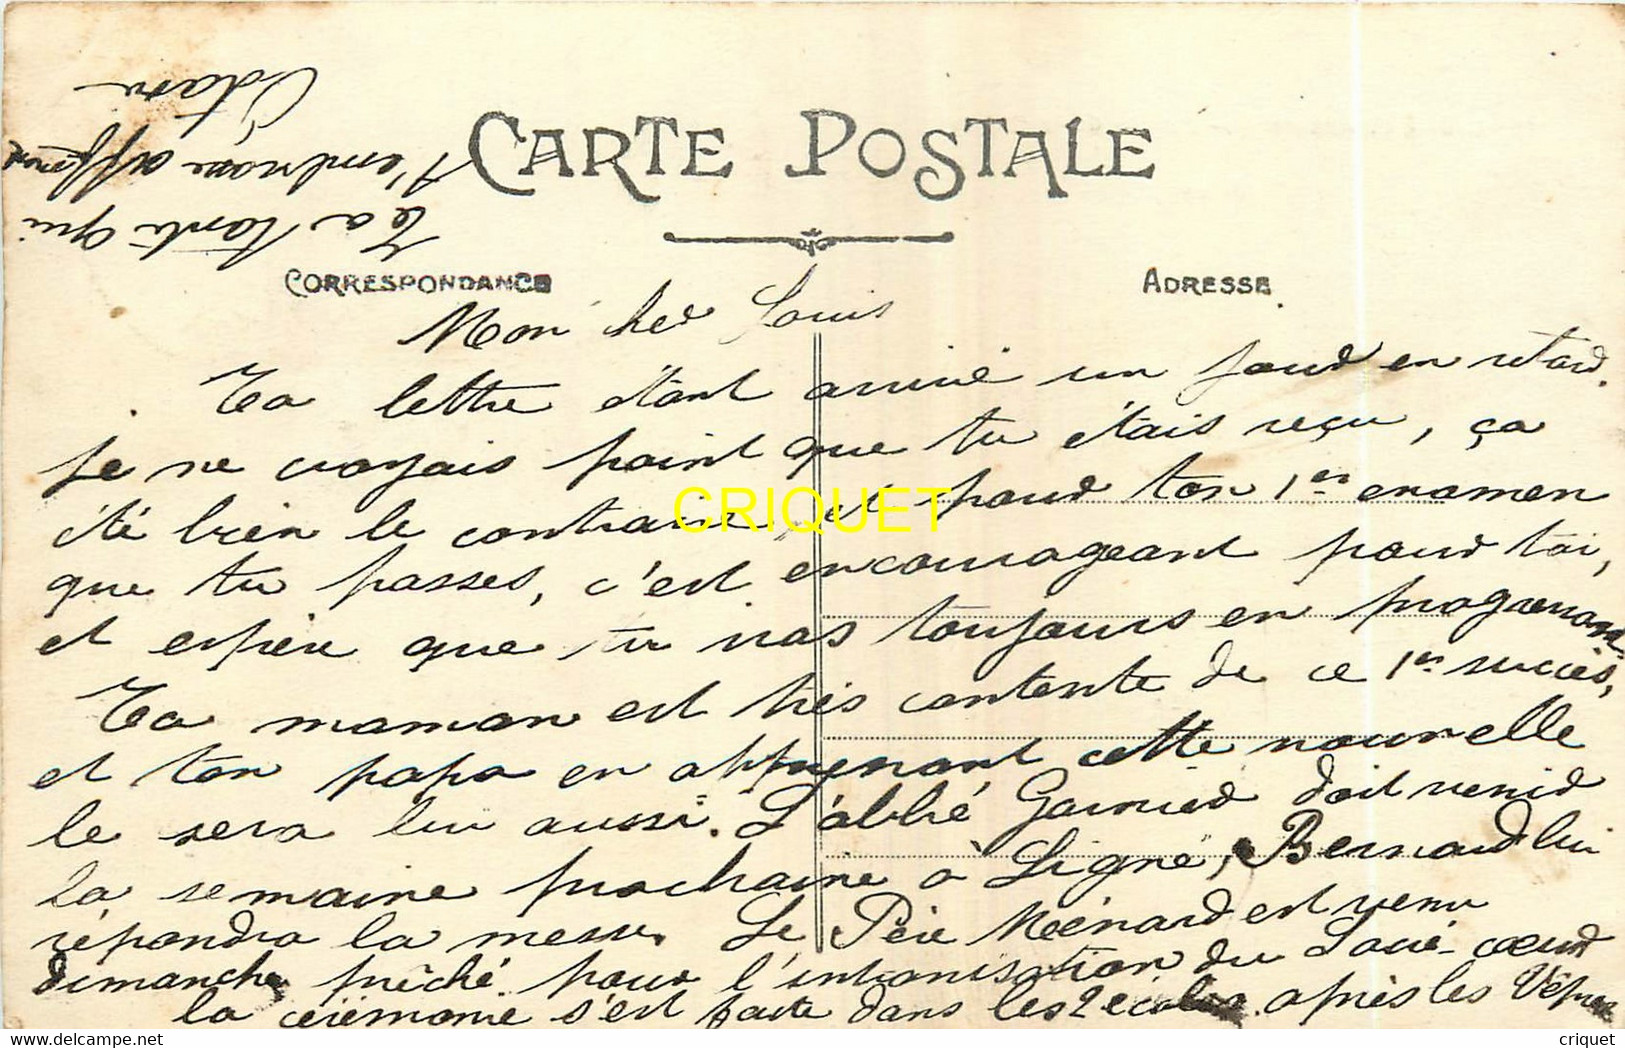 CARTE POSTALE
CORRESPONDANCE
ADRESSE
Mon cher Louis
Ta lettre étant arrivé un jour en retard.
je ne croyais point que tu étais reçu, ça
été bien le contraire, et pour ton 1er examen
que tu passes, c'est encourageant pour toi,
et espère que tu vas toujours en progressant.
Ta maman est très contente de ce 1er succès,
et ton papa en apprenant cette nouvelle
le sera lui aussi. L'abbé Garnier doit venir
la semaine prochaine à Ligné, Bernard lui
répondra la messe. Le Père Ménard est venu
dimanche prêché pour l'intronisation du Sacré-coeur
la cérémonie s'est faite dans les 2 écoles après les Vêpres
Ta tante qui
t'embrasse
CRIQUET
criquet
www.delcampe.net